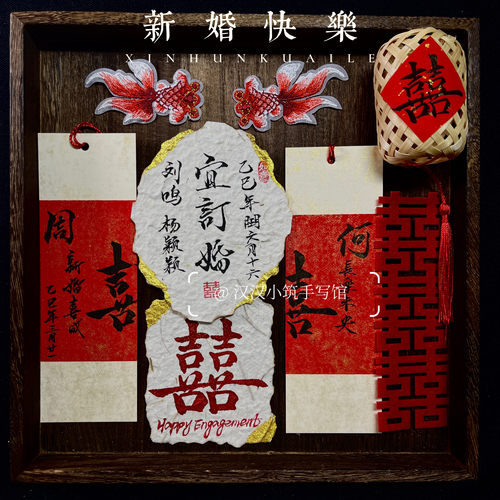 新婚快樂
XINHUNKUAILE
囍
乙巳年閏六月十六
宜訂婚
刘鸣 杨颖颖
囍
周
新婚喜
乙巳年三月廿一
囍
何
長樂未央
囍
@汉汉小筑手写馆
囍
Happy Engagement
囍
囍
囍